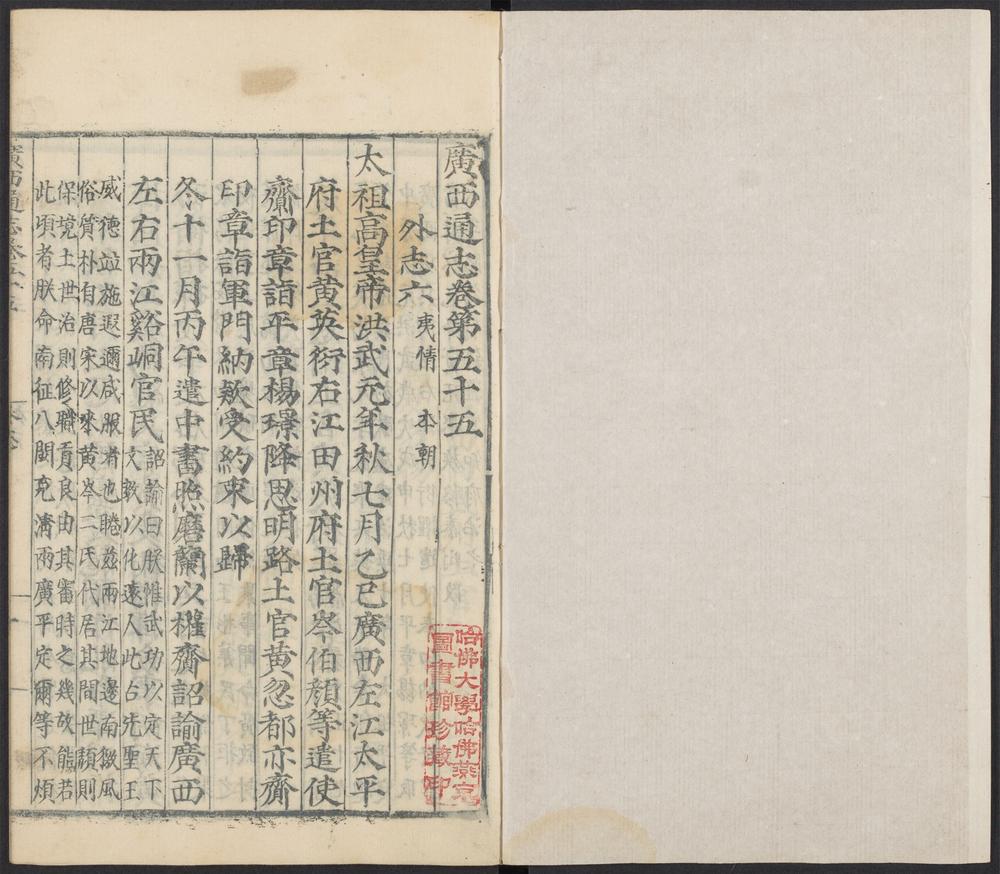 廣西通志卷第五十五
外志六 夷情 本朝
太祖高皇帝洪武元年秋七月乙巳廣西左江太平
府土官黃英衍右江田州府土官岑伯顏等遣使
齎印章詣平章楊璟降思明路土官黃忽都亦齎
印章詣軍門納欵受約束以歸
冬十一月丙午遣中書照磨蘭以權齎詔諭廣西
左右兩江谿峒官民
詔諭曰朕惟武功以定天下
文教以化遠人此古先聖王
威德竝施遐邇咸服者也睠茲兩江地邊南徼風
俗質朴自唐宋以來黃岑二氏代居其間世頴則
保境土世治則修職貢良由其審時之幾故能若
此頃者朕命南征八閩克清兩廣平定爾等不煩
廣西通志卷五十五
哈佛大學哈佛燕京
圖書館珍藏印